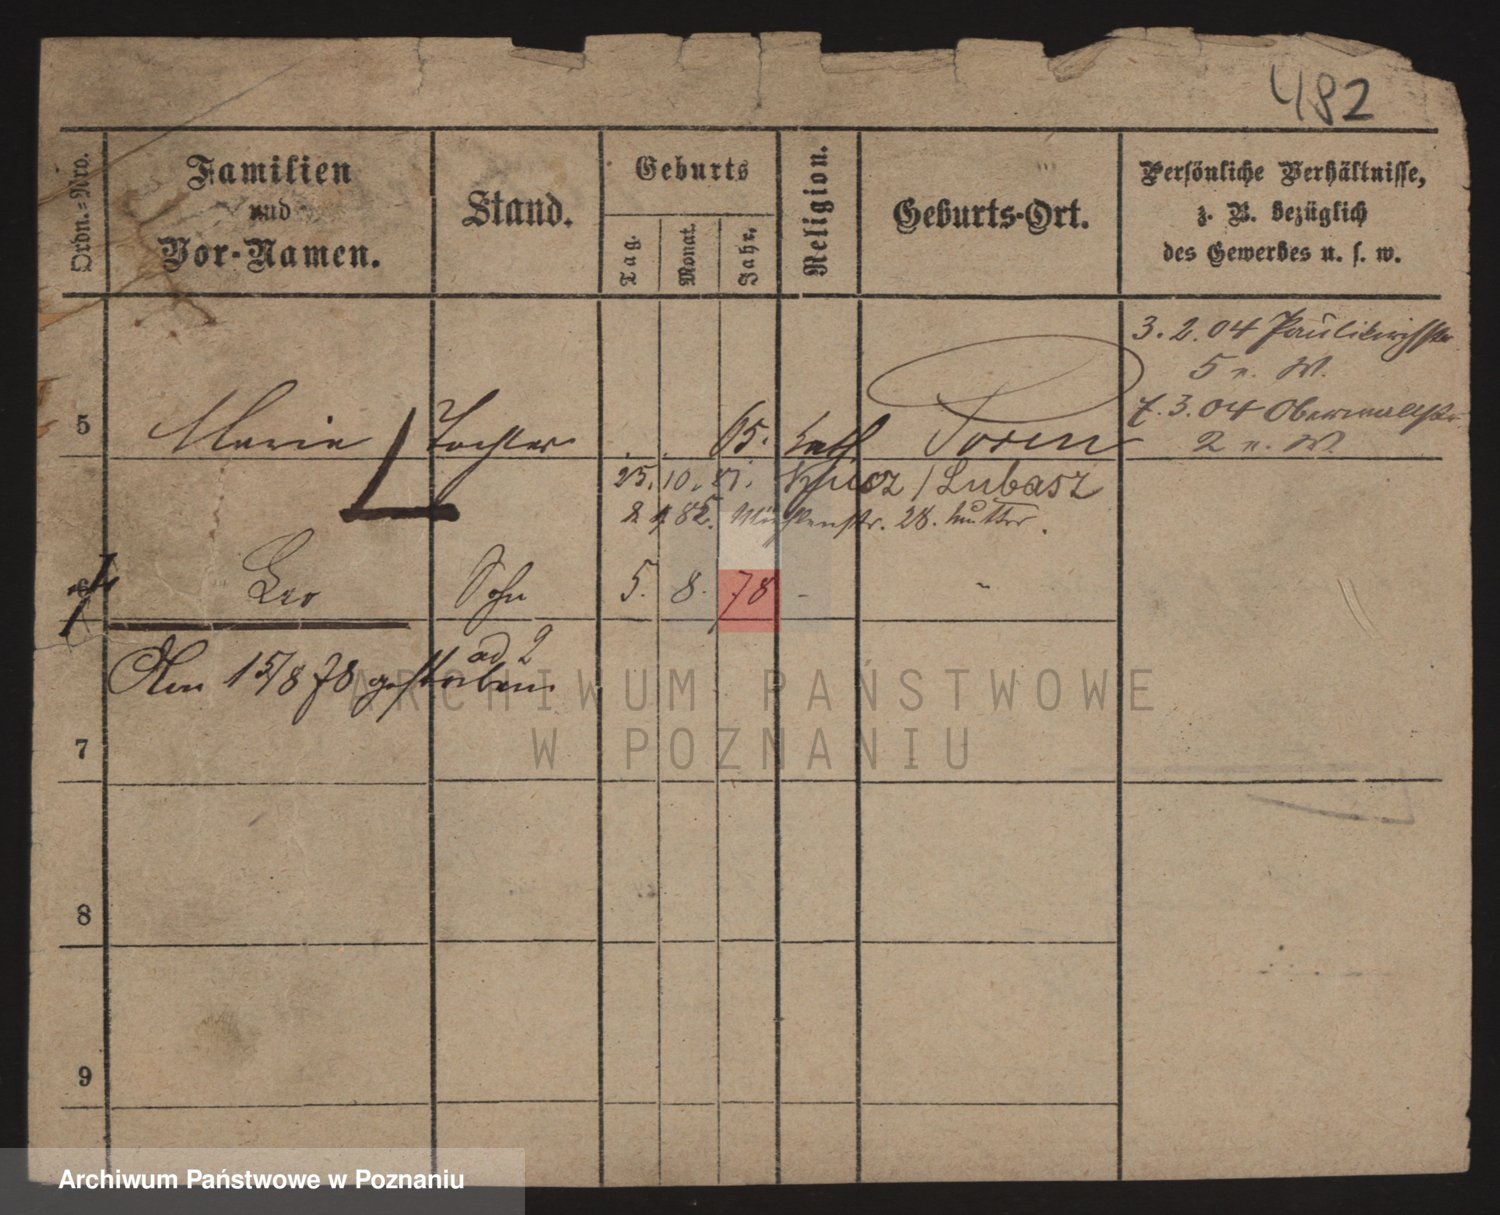 482
Ordn.=Nro.
Familien
und
Vor-Namen.
Stand.
Geburts
Tag.
Monat.
Jahr.
Religion.
Geburts-Ort.
Persönliche Verhältnisse,
z. B. bezüglich
des Gewerbes u. s. w.
3. 2. 04 Paulikirchstr
5 n. W.
7. 3. 04 Oberwallstr.
2 n. W.
5 Marie Tochter 65. kath Posen
25. 10. / Lubasz
2 4 82. Mühlenstr. 28. Mutter.
6 Leo Sohn 5. 8. 78 - "
ad 2
Am 15/8 78 gestorben
ARCHIWUM PAŃSTWOWE
W POZNANIU
7
8
9
Archiwum Państwowe w Poznaniu